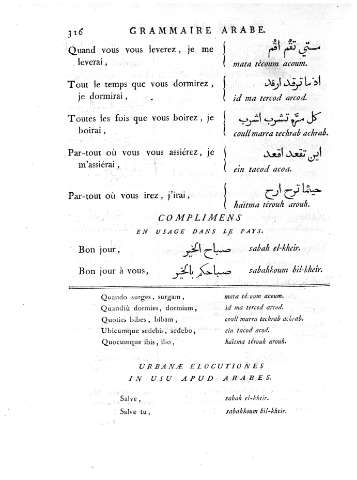 316 GRAMMAIRE ARABE.
Quand vous vous leverez, je me leverai, متى تقم اقم
mata técoum acoum.
Tout le temps que vous dormirez, je dormirai, اد ما ترقد ارقد
id ma tercod arcod.
Toutes les fois que vous boirez, je boirai, كل مرة تشرب اشرب
coull marra techrab achrab.
Par-tout où vous vous assiérez, je m'assiérai, اين تقعد اقعد
ein tacod acoa.
Par-tout où vous irez, j'irai, حيثما ترح ارح
haitma térouh arouh.
COMPLIMENS
EN USAGE DANS LE PAYS.
Bon jour, صباح الخير sabah el-kheir.
Bon jour à vous, صباحكم بالخير sabahkoum bil-kheir.
Quando surges, surgam, mata técoum acoum.
Quandiù dormies, dormiam, id ma tercod arcod.
Quoties bibes, bibam, coull marra techrab achrab.
Ubicumque sedebis, sedebo, ein tacod acod.
Quocumque ibis, ibo, haitma térouh arouh.
URBANÆ ELOCUTIONES
IN USU APUD ARABES.
Salve, sabah el-kheir.
Salve tu, sabahkoum bil-kheir.